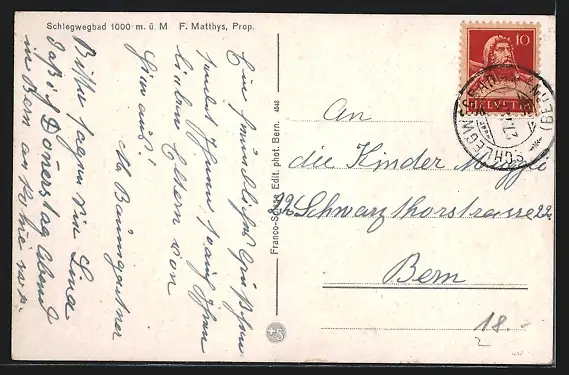 Schlegwegbad 1000 m. ü. M   F. Matthys, Prop.
Ein freundliches Grüßchen
sendet Ihnen sowie Ihren
lieben Eltern von
hier aus!
M. Baumgartner
Bitte sagen Sie Lina
daß ich Donerstag Abend
in Bern an
Franco-Suisse Edit. phot. Bern. 4848
10
HELVETIA
SCHLEGWEGBAD (BERN)
An
die Kinder Müggli
22 Schwarzthorstrasse 22
Bern
18.-